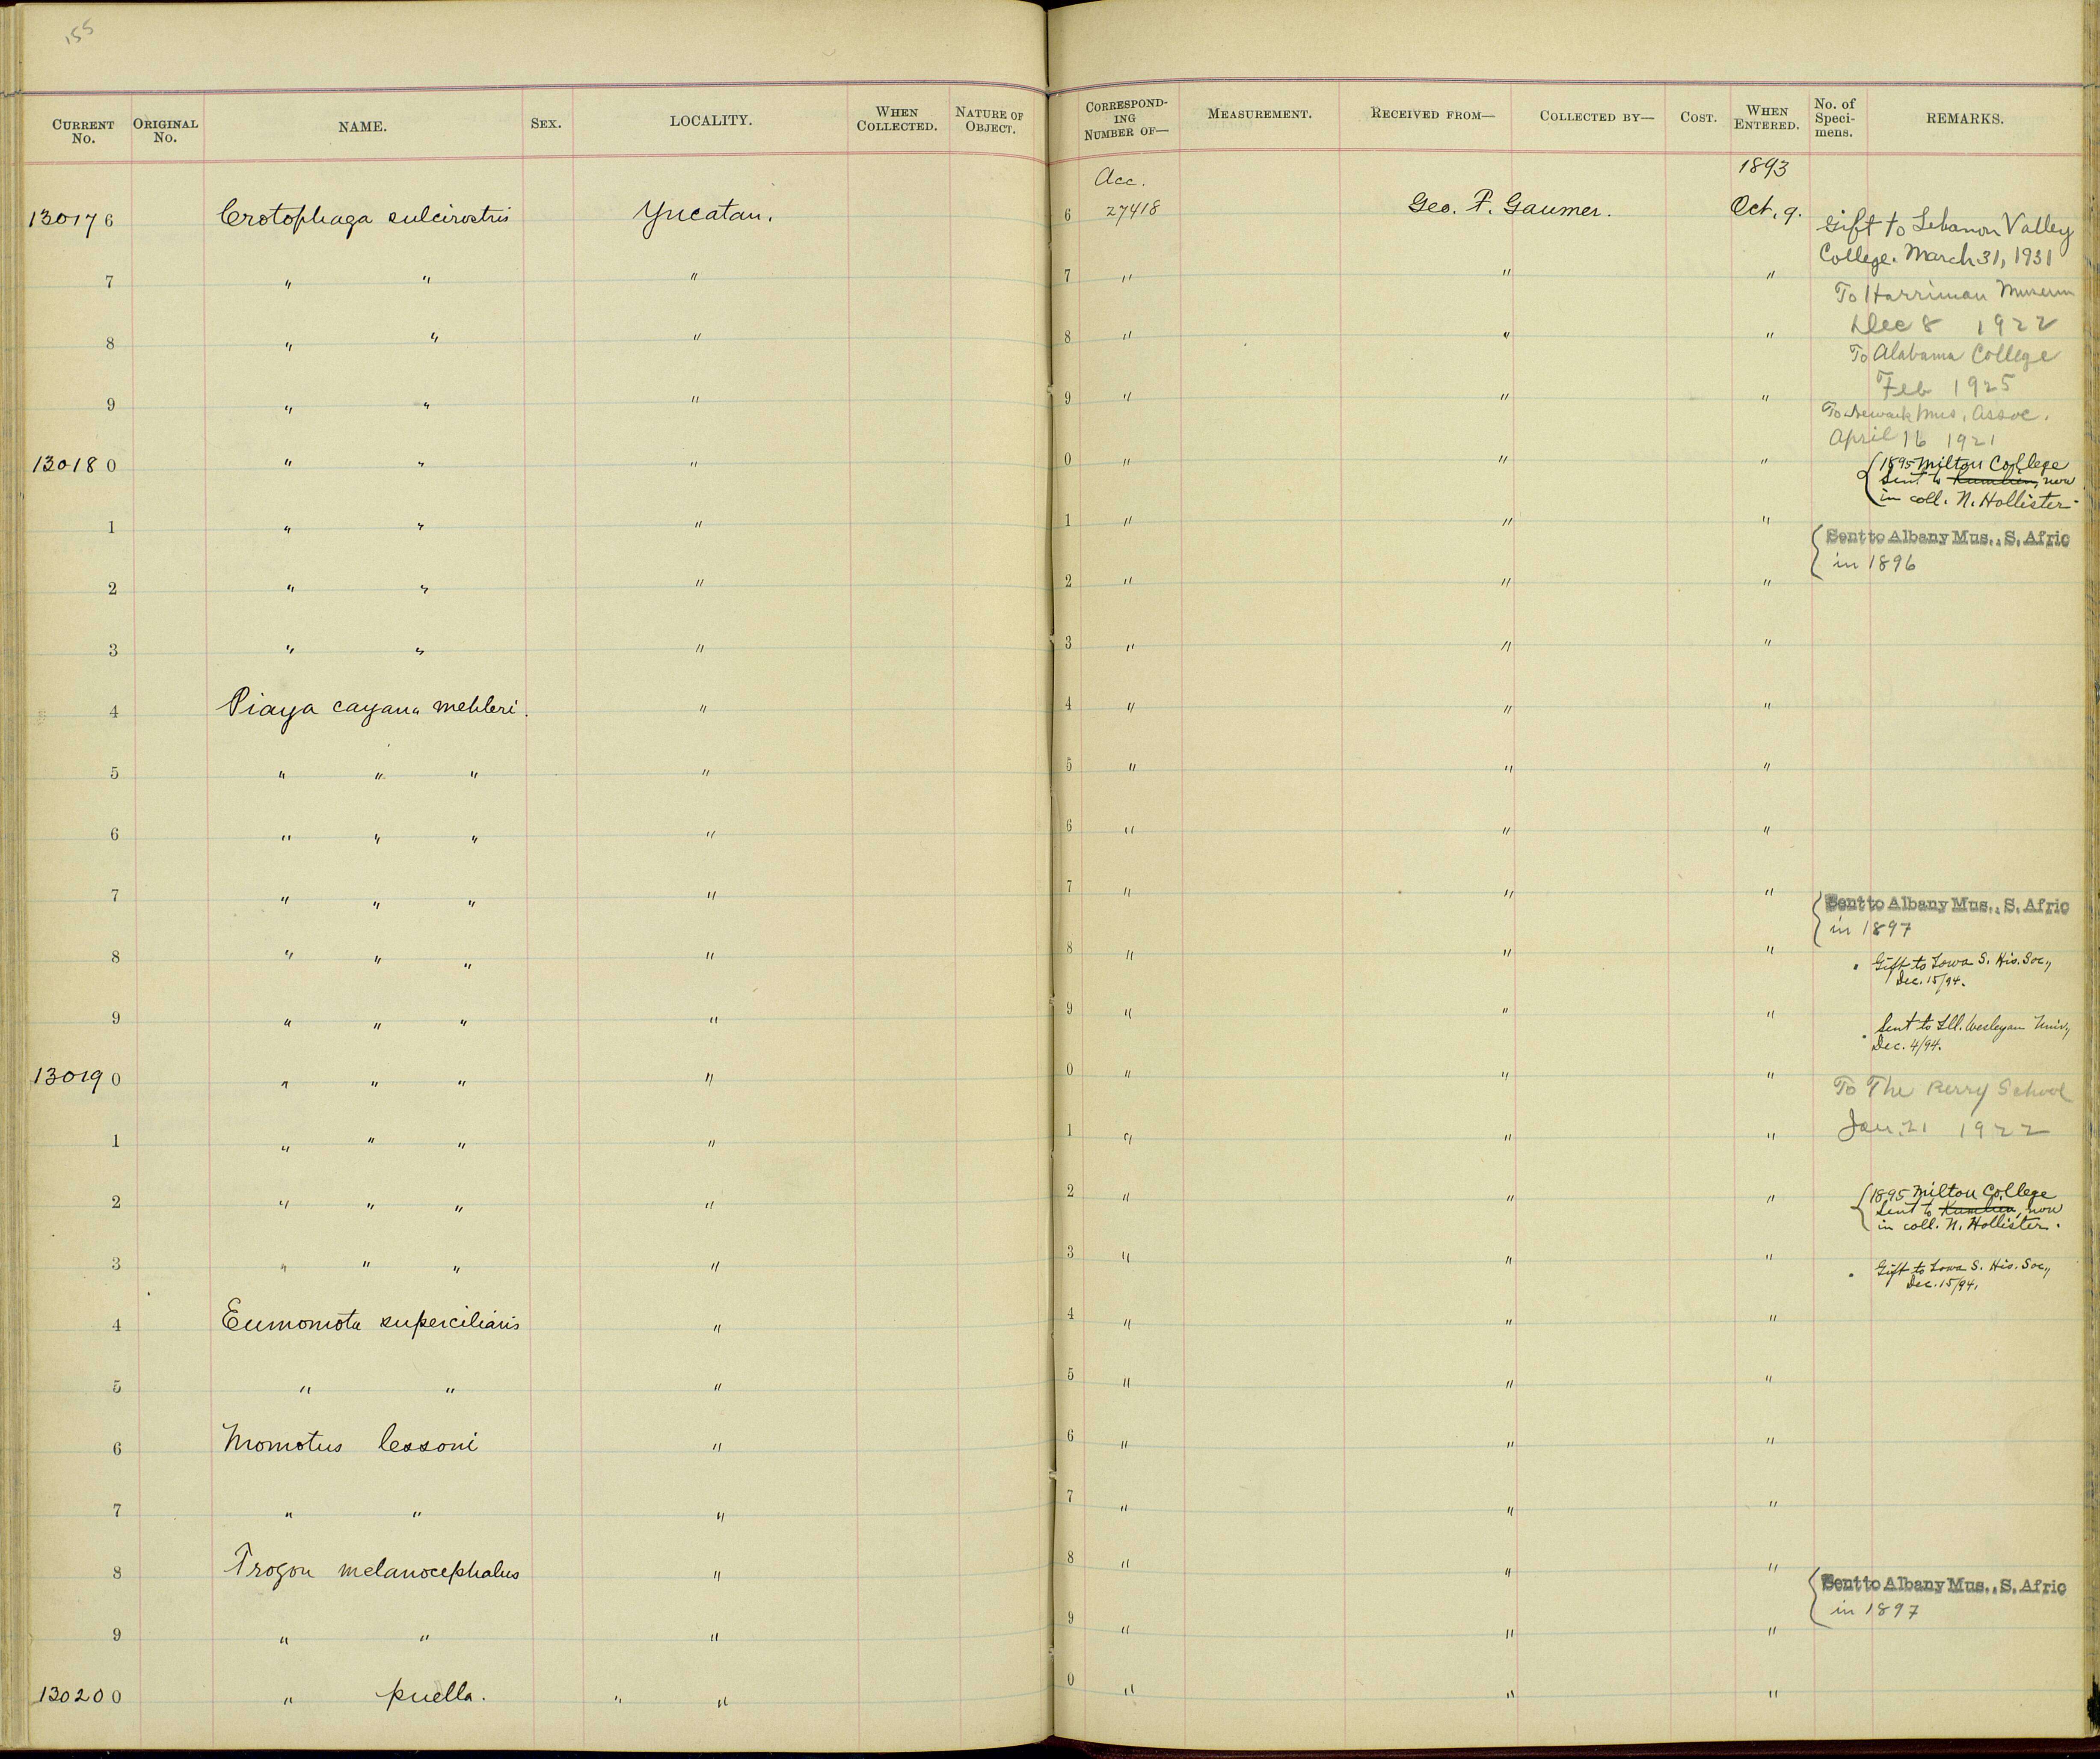 155
CURRENT No. ORIGINAL No. NAME. SEX. LOCALITY. WHEN COLLECTED. NATURE OF OBJECT. CORRESPOND-ING NUMBER OF— MEASUREMENT. RECEIVED FROM— COLLECTED BY— COST. WHEN ENTERED. No. of Speci-mens. REMARKS.
Acc. 1893
130176 Crotophaga sulcirostris Yucatan. 6 27418 Geo. F. Gaumer. Oct. 9. Gift to Lebanon Valley
College. March 31, 1931
7 " " " 7 " " "
To Harriman Museum
Dec 8 1922
8 " " " 8 " " "
To Alabama College
Feb 1925
9 " " " 9 " " "
To Newark Mus. Assoc.
April 16 1921
130180 " " " 0 " " "
1895 Milton College
Sent to Kumlien, now
in coll. N. Hollister.
1 " " " 1 " " "
Sent to Albany Mus., S. Afric
in 1896
2 " " " 2 " " "
3 " " " 3 " " "
4 Piaya cayana mehleri. " 4 " " "
5 " " " " 5 " " "
6 " " " " 6 " " "
7 " " " " 7 " " "
Sent to Albany Mus., S. Afric
in 1897
8 " " " " 8 " " "
Gift to Iowa S. His. Soc.,
Dec. 15/94.
9 " " " " 9 " " "
Sent to Ill. Wesleyan Univ.,
Dec. 4/94.
130190 " " " " 0 " " "
To The Berry School
Jan. 21 1922
1 " " " " 1 " " "
2 " " " " 2 " " "
1895 Milton College
Sent to Kumlien, now
in coll. N. Hollister.
3 " " " " 3 " " "
Gift to Iowa S. His. Soc.,
Dec. 15/94.
4 Eumomota superciliaris " 4 " " "
5 " " " 5 " " "
6 Momotus lessoni " 6 " " "
7 " " " 7 " " "
8 Trogon melanocephalus " 8 " " "
Sent to Albany Mus., S. Afric
in 1897
9 " " " 9 " " "
130200 " puella. " " 0 " " "